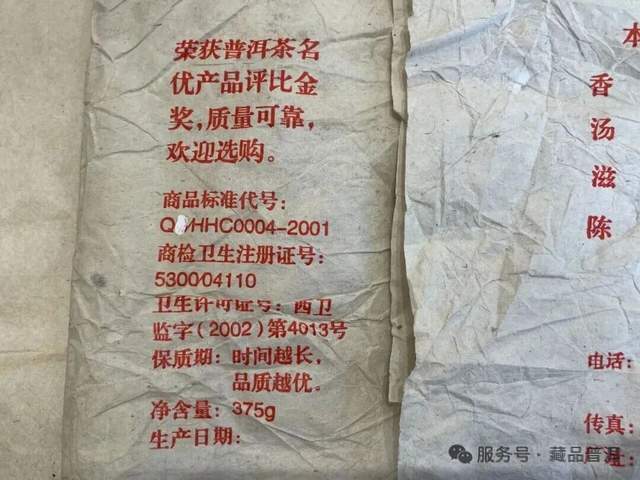 荣获普洱茶名
优产品评比金
奖,质量可靠,
欢迎选购。
商品标准代号:
Q/YHHC0004-2001
商检卫生注册证号:
530004110
卫生许可证号: 西卫
监字(2002)第4013号
保质期: 时间越长,
品质越优。
净含量: 375g
生产日期:
本
香
汤
滋
陈
电话:
传真:
厂址:
服务号 · 藏品普洱